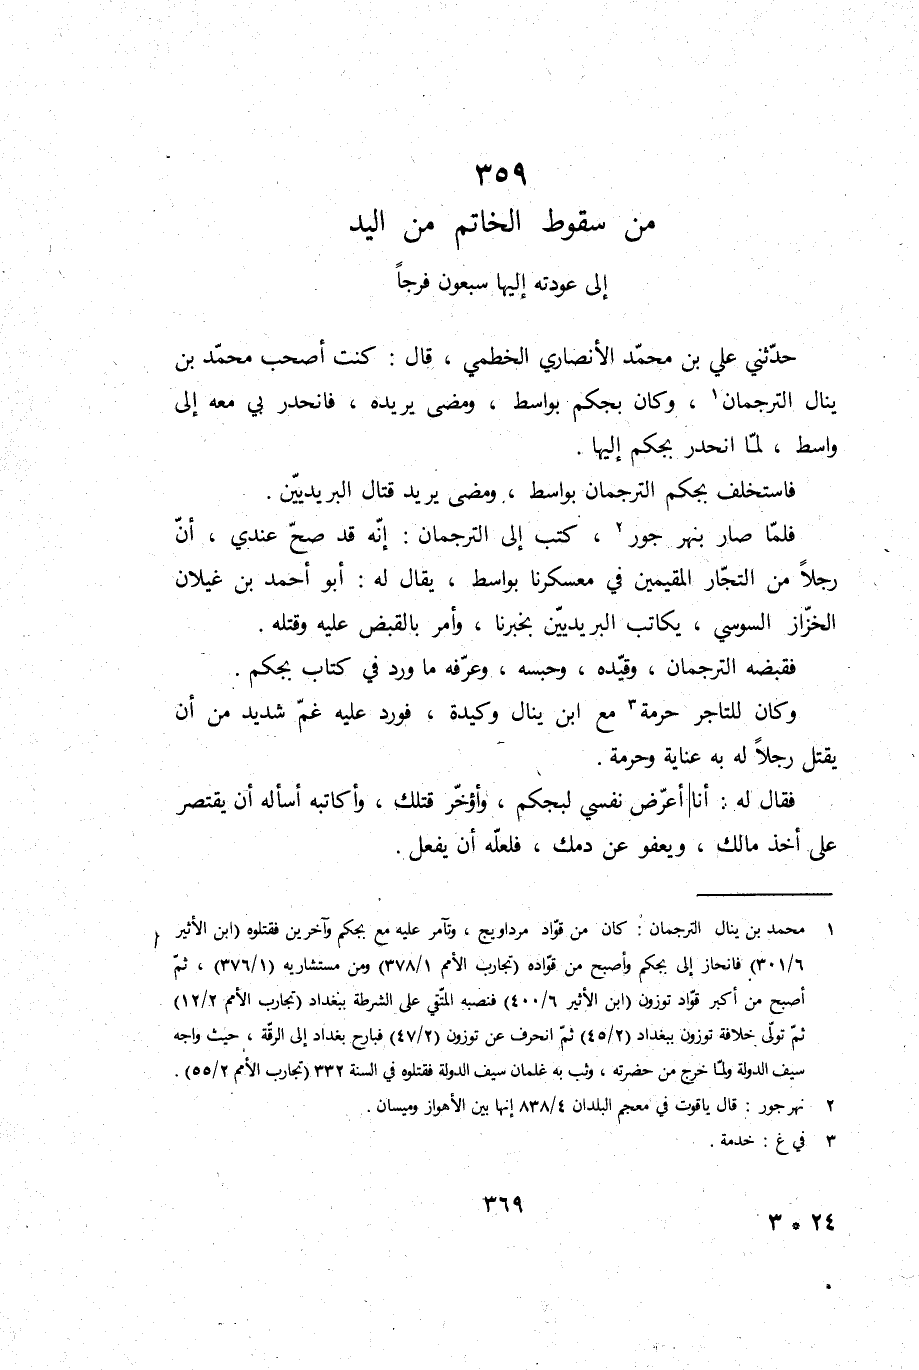 ٣٥٩
من سقوط الخاتم من اليد
إلى عودته إليها سبعون فرجاً
حدّثني علي بن محمّد الأنصاري الخطمي ، قال : كنت أصحب محمّد بن
ينال الترجمان١ ، وكان بجكم بواسط ، ومضى يريده ، فانحدر بي معه إلى
واسط ، لمّا انحدر بجكم إليها .
فاستخلف بجكم الترجمان بواسط ، ومضى يريد قتال البريديّين .
فلمّا صار بنهر جور٢ ، كتب إلى الترجمان : إنّه قد صحّ عندي ، أنّ
رجلاً من التجّار المقيمين في معسكرنا بواسط ، يقال له : أبو أحمد بن غيلان
الخزّاز السوسي ، يكاتب البريديّين بخبرنا ، وأمر بالقبض عليه وقتله .
فقبضه الترجمان ، وقيّده ، وحبسه ، وعرّفه ما ورد في كتاب بجكم .
وكان للتاجر حرمة٣ مع ابن ينال وكيدة ، فورد عليه غمّ شديد من أن
يقتل رجلاً له به عناية وحرمة .
فقال له : أنا أعرّض نفسي لبجكم ، وأؤخّر قتلك ، وأكاتبه أسأله أن يقتصر
على أخذ مالك ، ويعفو عن دمك ، فلعلّه أن يفعل .
١ محمد بن ينال الترجمان : كان من قوّاد مرداويج ، وتآمر عليه مع بجكم وآخرين فقتلوه (ابن الأثير
٣٠١/٦) فانحاز إلى بجكم وأصبح من قوّاده (تجارب الأمم ٣٧٨/١) ومن مستشاريه (٣٧٦/١) ، ثمّ
أصبح من أكبر قوّاد توزون (ابن الأثير ٤٠٠/٦) فنصبه المتّقي على الشرطة ببغداد (تجارب الأمم ١٢/٢)
ثمّ تولّى خلافة توزون ببغداد (٤٥/٢) ثمّ انحرف عن توزون (٤٧/٢) فبارح بغداد إلى الرقّة ، حيث واجه
سيف الدولة ولمّا خرج من حضرته ، وثب به غلمان سيف الدولة فقتلوه في السنة ٣٣٢ (تجارب الأمم ٥٥/٢) .
٢ نهر جور : قال ياقوت في معجم البلدان ٨٣٨/٤ إنها بين الأهواز وميسان .
٣ في غ : خدمة .
٣٦٩
٢٤ * ٣